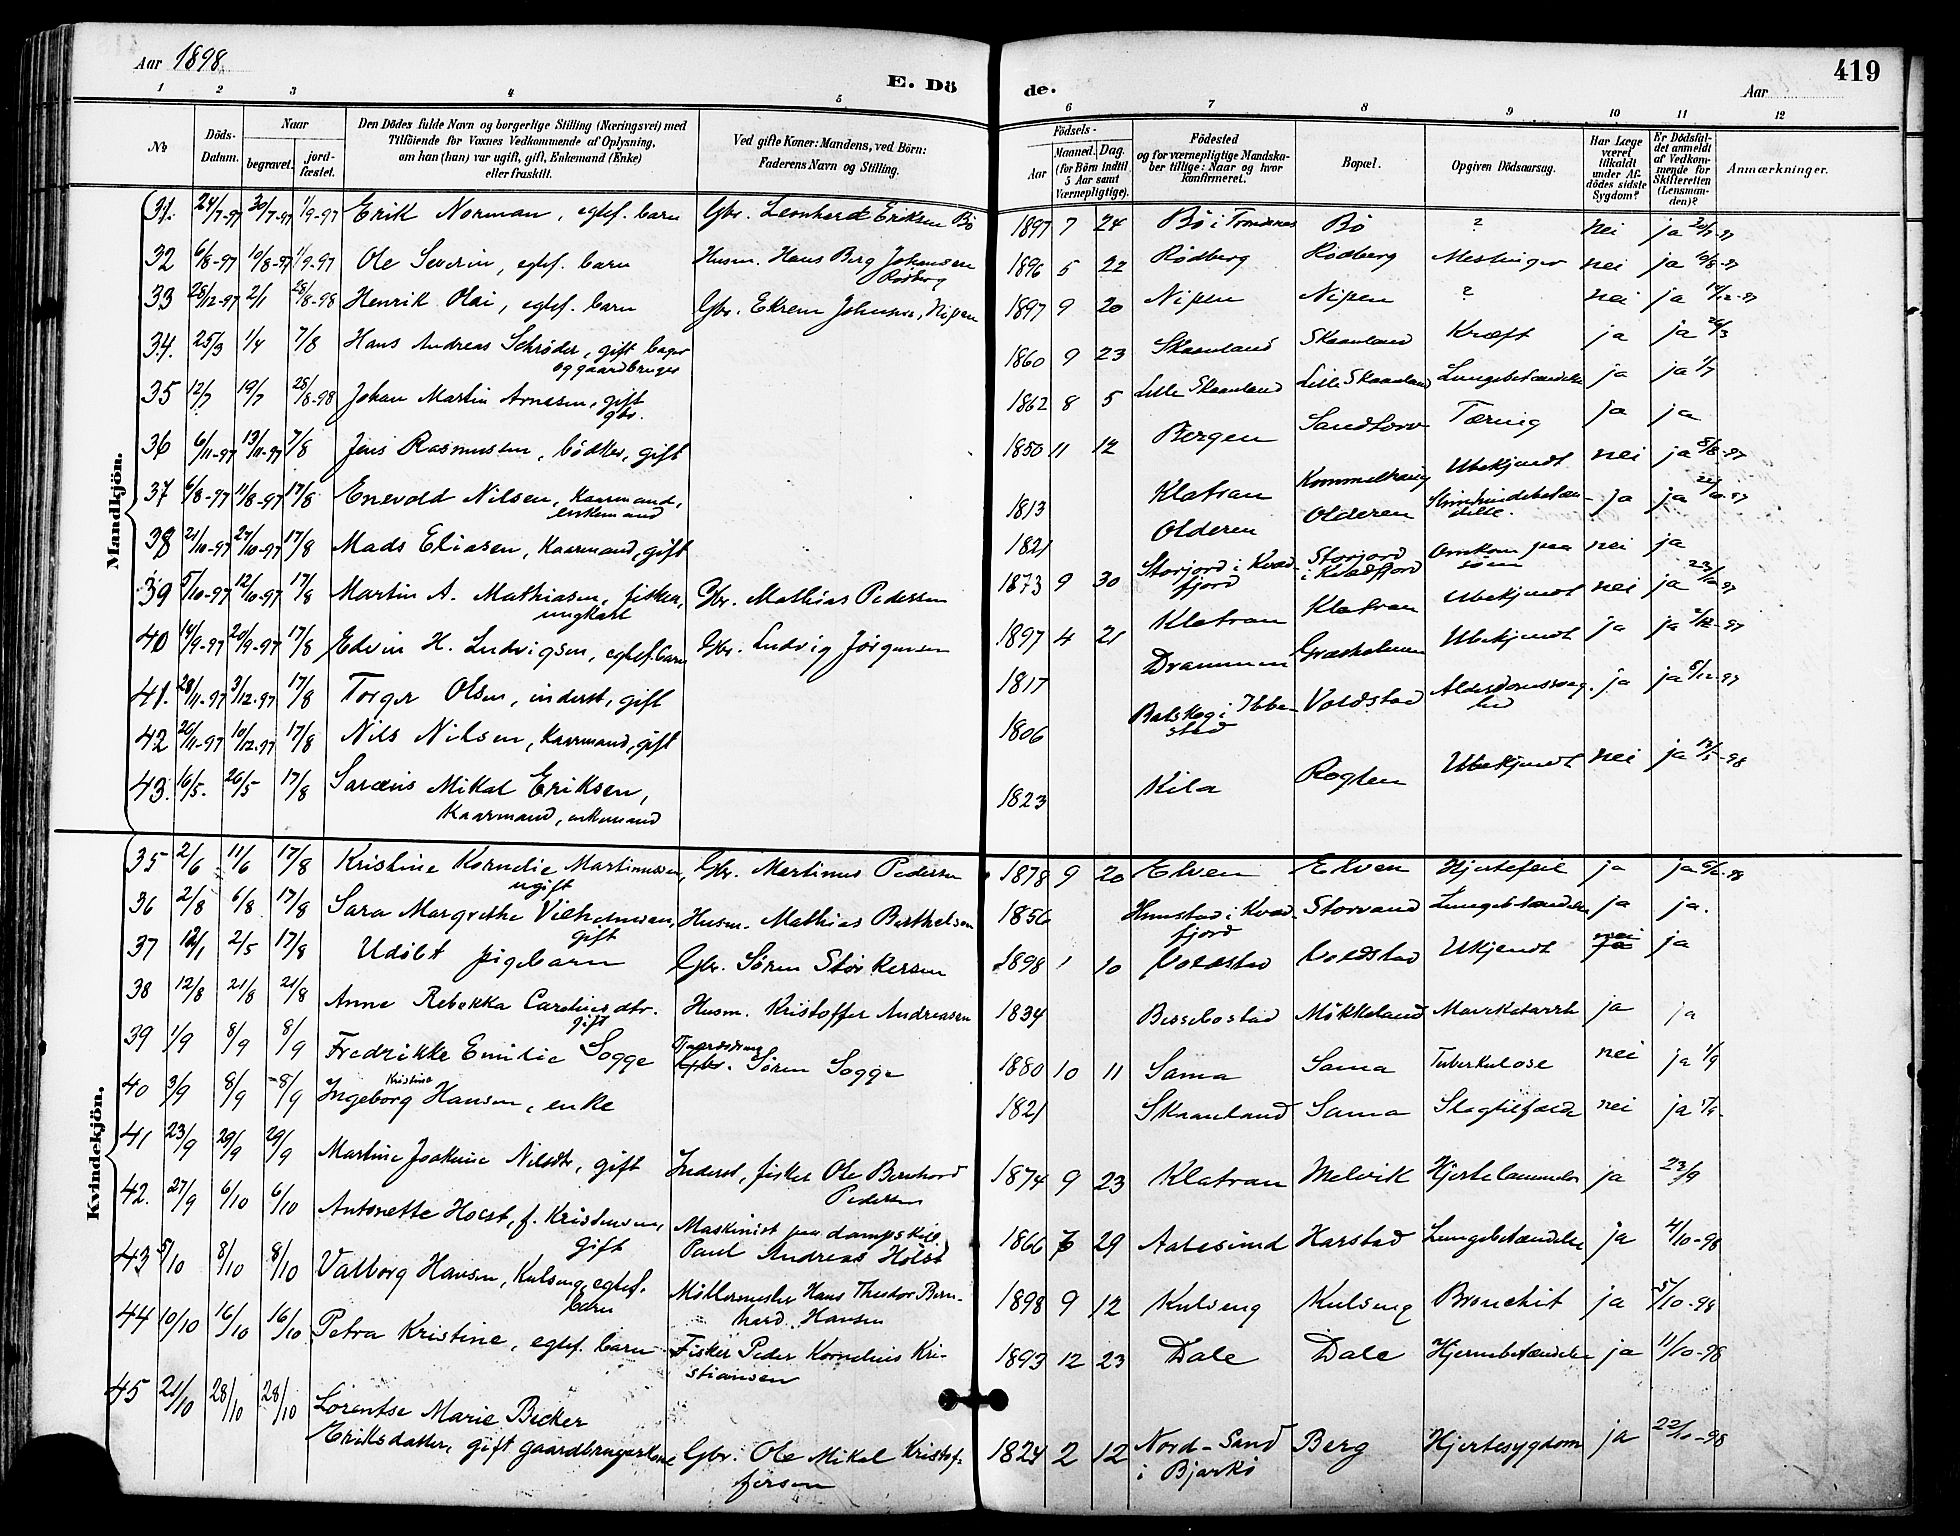 Aar 1898
E. Dö de.
Aar
419
1 2 3 4 5 6 7 8 9 10 11 12
No
Döds-Datum.
Naar
begravet.
jord-fæstet.
Den Dödes fulde Navn og borgerlige Stilling (Næringsvei) med
Tilföiende for Voxnes Vedkommende af Oplysning,
om han (hun) var ugift, gift, Enkemand (Enke)
eller fraskilt.
Ved gifte Koner: Mandens, ved Börn:
Faderens Navn og Stilling.
Födsels-
Aar
Maaned. Dag.
(for Börn indtil
5 Aar samt
Værnepligtige).
Födested
og for værnepligtige Mandska-
ber tillige: Naar og hvor
konfirmeret.
Bopæl.
Opgiven Dödsaarsag.
Har Læge
været
tilkaldt
under Af-
dödes sidste
Sygdom?
Er Dödsfal-
det anmeldt
af Vedkom-
mende for
Skifteretten
(Lensman-
den)?
Anmærkninger.
Mandkjön.
31. 24/7-97 30/7-97 1/9-97 Erik Norman, egtef. barn Gbr. Leonhard Eriksen Bö 1897 7 24 Bö i Trondenes Bö ? nei ja
32 6/8-97 10/8-97 1/9-97 Ole Severin, egtef. barn Husm. Hans Berg Johansen Rödberg 1896 5 22 Rödberg Rödberg Meslinger nei ja
33 28/12-97 2/1 28/8-98 Henrik Olai, egtef. barn Gbr. Johnsen, Nipen 1897 9 20 Nipen Nipen ? nei ja
34. 25/3 1/4 7/8 Hans Andreas Schröder, gift bager
og gaardbruger 1860 9 23 Skaanland Skaanland Kræft ja ja
35 12/7 19/7 28/8-98 Johan Martin Arnesen, gift
gbr. 1862 8 5 Lille Skaanland Lille Skaanland Lungebetændelse ja ja 1/7
36 6/11-97 13/11-97 7/8 Jens Rasmussen, bödker, gift 1850 11 12 Bergen Sandtorv Tæring ja ja
37 6/8-97 11/8-97 17/8 Enevold Nilsen, kaarmand,
enkemand 1813 Klatran Ubekjendt nei ja 8/8-97
38 21/10-97 27/10-97 17/8 Mads Eliasen, kaarmand, gift 1821 Olderen Olderen ja ja
39 5/10-97 12/10-97 17/8 Martin A. Mathiasen, fisker,
ungkarl Gbr. Mathias Pedersen 1873 9 30 Storjord i Kvæd-
fjord Storjord
i Kvædfjord Omkom paa
söen nei ja
40 14/9-97 20/9-97 17/8 Edvin H. Ludvigsen, egtef. barn Gbr. Ludvig Jörgensen 1897 4 21 Klatran Klatran Ubekjendt nei ja
41. 28/11-97 3/12-97 17/8 Torger Olsen, inderst, gift 1817 Drammen Græsholmen Ubekjendt ja ja 2/12-97
42 26/11-97 10/12-97 17/8 Nils Nilsen, kaarmand, gift 1806 Balskog i Ibbe-
stad Voldstad Alderdomssvag-
hed ja ja
43. 16/5. 26/5 17/8 Mikal Eriksen,
kaarmand, enkemand 1823 Kila Roglen Ubekjendt nei ja
Kvindekjön.
35 2/6 11/6 17/8 Kristine Kornelie Martinussen,
ugift Gbr. Martinus Pedersen 1878 9 20 Elven Elven Hjertefeil ja ja
36 2/8 6/8 17/8 Sara Margrethe Vilhelmsen,
gift Husm. Mathias Berthelsen 1856 Hunstad i Kvæd-
fjord Storvand Lungebetændelse ja ja.
37 12/1 2/5 17/8 Udöbt pigebarn Gbr. Sören Störkersen 1898 1 10 Voldstad Voldstad Ukjendt nei ja
38 12/8 21/8 21/8 Anne Rebekka Carolinesdtr.
gift Husm. Kristoffer Andreasen 1834 Bessebostad Mökkeland Mavekatarrh ja ja
39 1/9 8/9 8/9 Fredrikke Emilie Sogge Gbr. Sören Sogge 1880 10 11 Sama Sama Tuberkulose nei ja 1/9
40 3/9 8/9 8/9 Ingeborg Kristine Hansen, enke 1821 Skaanland Sama Slagtilfælde nei ja
41 23/9 29/9 29/9 Martine Joakime Nilsdtr, gift Inderst, fisker Ole Bernhard
Pedersen 1874 9 23 Klatran Melvik Hjertelammelse ja 23/9
42. 27/9 6/10 6/10 Antonette Holst, f. Kristensen,
gift Maskinist paa dampskib
Paul Andreas Holst 1866 29 Aalesund Harstad Lungebetændelse ja 4/10-98
43 5/10 8/10 8/10 Valborg Hansen, Kulseng, egtef.
barn Möllermester Hans Theodor Bern-
hard Hansen 1898 9 12 Kulseng Kulseng Bronchit ja 5/10-98
44 10/10 16/10 16/10 Petra Kristine, egtef. barn Fisker Peder Kornelius Kri-
stiansen 1893 12 23 Dale Dale Hjernebetændelse ja 11/10-98
45 21/10 28/10 28/10 Lorentse Marie Becker
Eriksdatter, gift gaardbrugerkone Gbr. Ole Mikal Kristof-
fersen 1824 2 12 Nord-Sand
i Bjarkö Berg Hjertesygdom ja 22/10-98